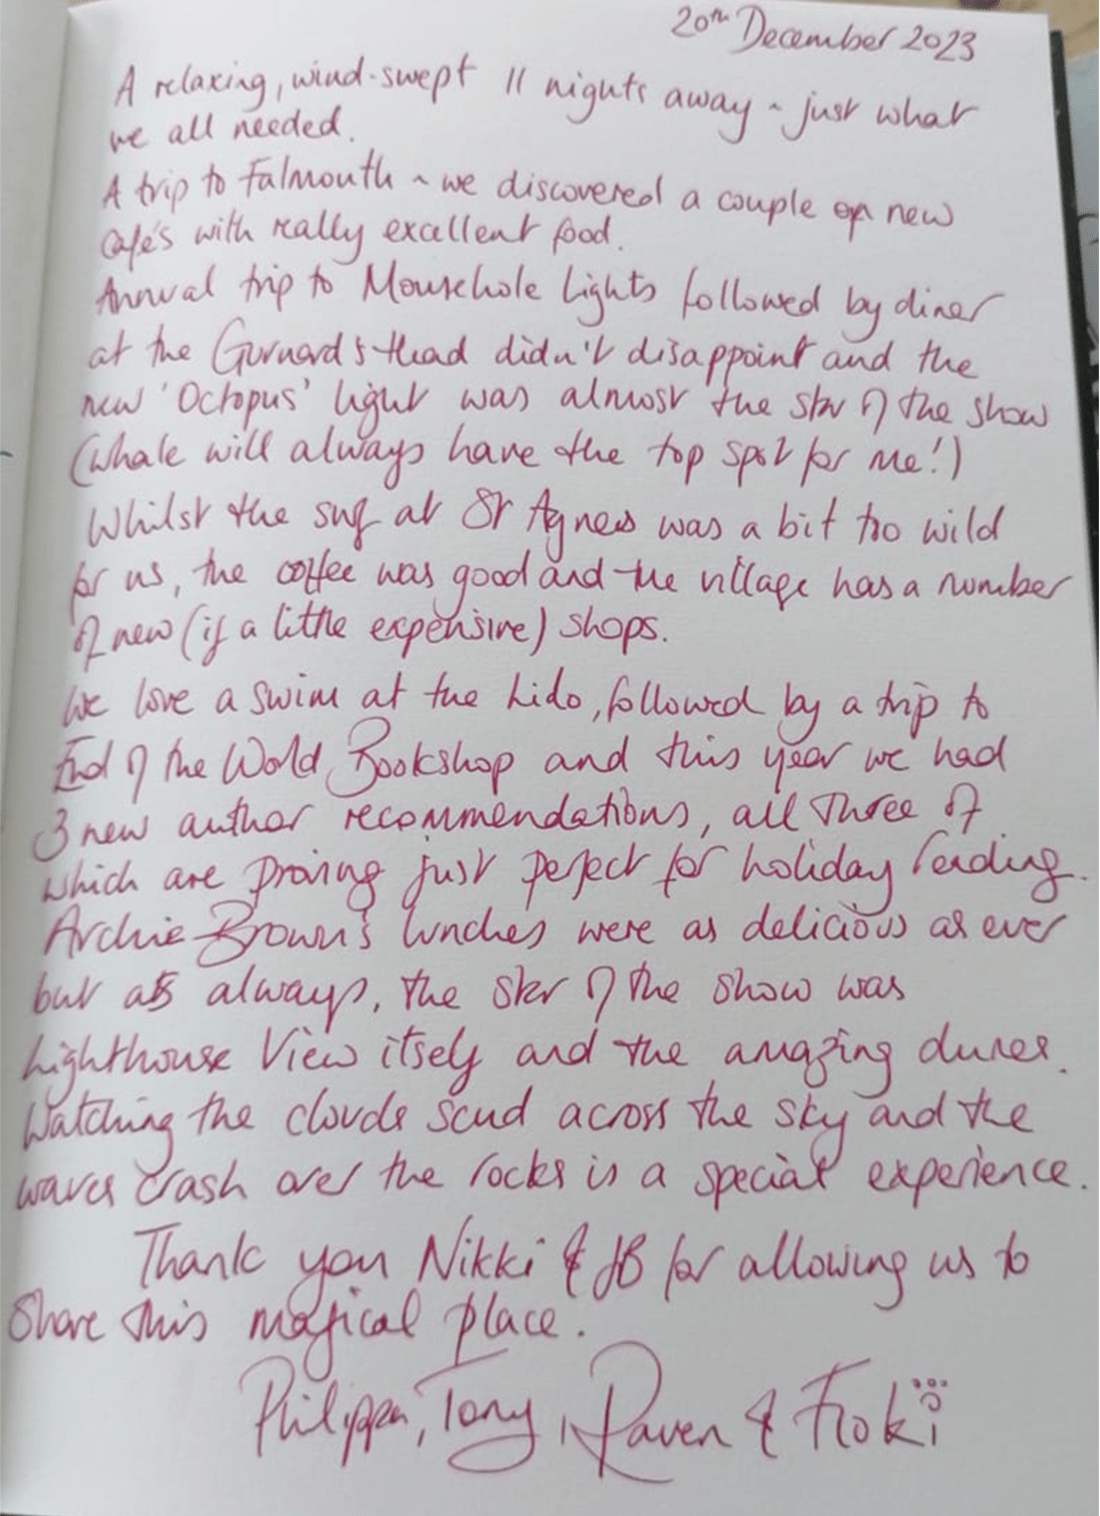 20th December 2023
A relaxing, wind-swept 11 nights away ~ just what
we all needed.
A trip to Falmouth ~ we discovered a couple of new
cafe's with really excellent food.
Annual trip to Mousehole Lights followed by diner
at the Gurnard's Head didn't disappoint and the
new 'Octopus' light was almost the star of the show
(whale will always have the top spot for me!)
Whilst the surf at St Agnes was a bit too wild
for us, the coffee was good and the village has a number
of new (if a little expensive) shops.
We love a swim at the Lido, followed by a trip to
End of the World Bookshop and this year we had
3 new author recommendations, all three of
which are proving just perfect for holiday reading.
Archie Brown's lunches were as delicious as ever
but as always, the star of the show was
Lighthouse View itself and the amazing dunes.
Watching the clouds scud across the sky and the
waves crash over the rocks is a special experience.
Thank you Nikki & JB for allowing us to
share this magical place.
Philippa, Tony, Raven & Floki